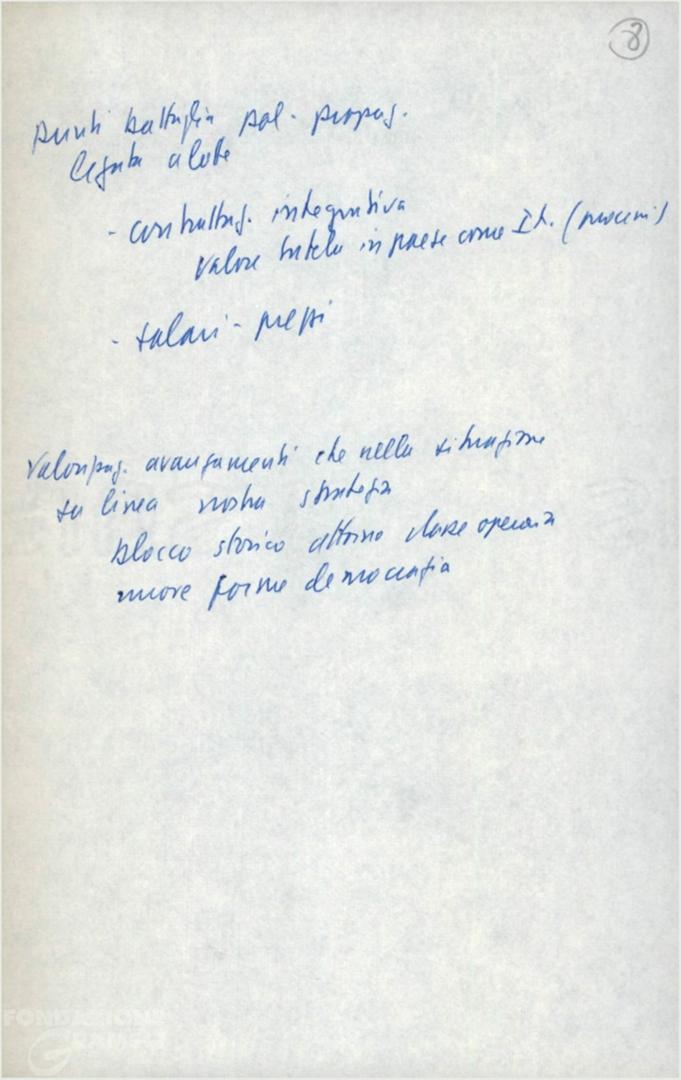 8
punti battaglia pol. propag.
legata a lotte
- contrattaz. integrativa
valore tutela in paese come It.
- salari - prezzi
Valorizzaz. avanzamenti che nella situazione
su linea nostra strategia
blocco storico attorno classe operaia
nuove forme democrazia
FONDAZIONE
GRAMSCI